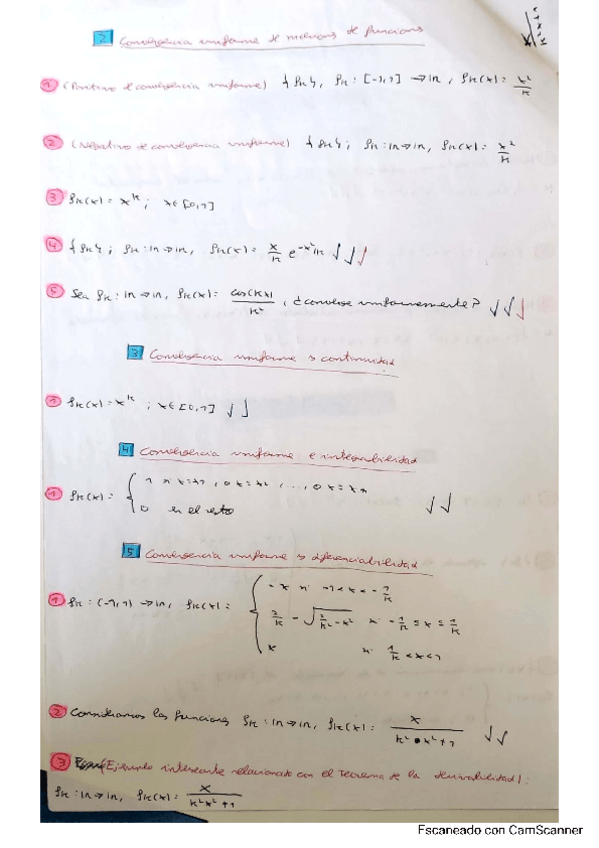 2 Convergencia uniforme de sucesiones de funciones
1 (Positivo de convergencia uniforme) {fk}, fk: [-1,1] → IR, fk(x) = x²/k
2 (Negativo de convergencia uniforme) {fk}; fk: IR → IR, fk(x) = x²/k
3 fk(x) = x^k; x∈[0,1]
4 {fk}; fk: IR → IR, fk(x) = x/k e^-x²/k √√√
5 Sea fk: IR → IR, fk(x) = cos(kx)/k², ¿converge uniformemente? √√√
3 Convergencia uniforme y continuidad
1 fk(x) = x^k; x∈[0,1] √√
4 Convergencia uniforme e integrabilidad
1 fk(x) = { 1 si x=x1, o x=x2, ..., o x=xk
0 en el resto √√
5 Convergencia uniforme y diferenciabilidad
1 fk: (-1,1) → IR, fk(x) = { -x si -1<x<-1/k
2/k - √(2/k² - x²) si -1/k ≤ x ≤ 1/k
x si 1/k < x < 1
2 Consideramos las funciones fk: IR → IR, fk(x) = x/(k²x²+1) √√
3 (Ejemplo interesante relacionado con el Teorema de la derivabilidad):
fk: IR → IR, fk(x) = x/(k²x²+1)
Escaneado con CamScanner